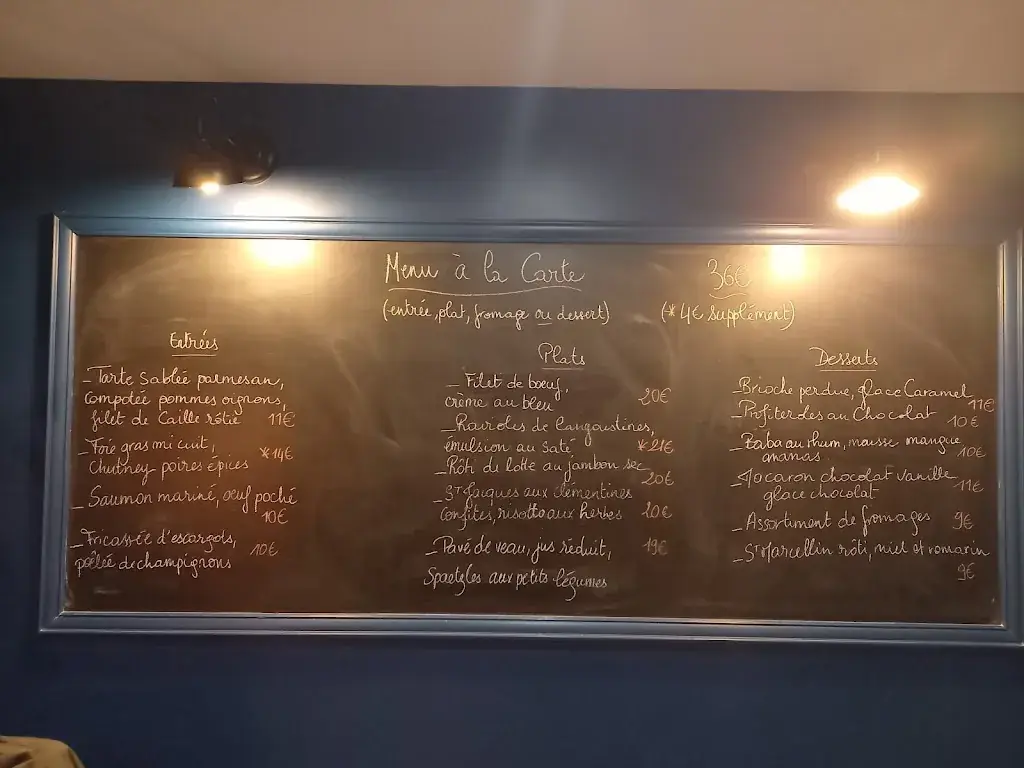 Menu à la Carte 36€
(entrée, plat, fromage ou dessert) (*4€ supplément)
Entrées
_Tarte Sablée parmesan,
compotée pommes oignons,
filet de Caille rôtie 11€
_Foie gras mi cuit, *14€
chutney poires épices
_Saumon mariné, oeuf poché
10€
_Fricassée d'escargots, 10€
poêlée de champignons
Plats
_Filet de boeuf, 20€
crème au bleu
_Ravioles de langoustines,
émulsion au Saté *21€
_Rôti de lotte au jambon sec 20€
_St Jacques aux clémentines
confites, risotto aux herbes 20€
_Pavé de veau, jus réduit, 19€
Spaetzles aux petits légumes
Desserts
_Brioche perdue, glace Caramel 11€
_Profiteroles au Chocolat 10€
_Baba au rhum, mousse mangue
ananas 10€
_Macaron chocolat Vanille 11€
glace chocolat
_Assortiment de fromages 9€
_St Marcellin rôti, miel et romarin
9€